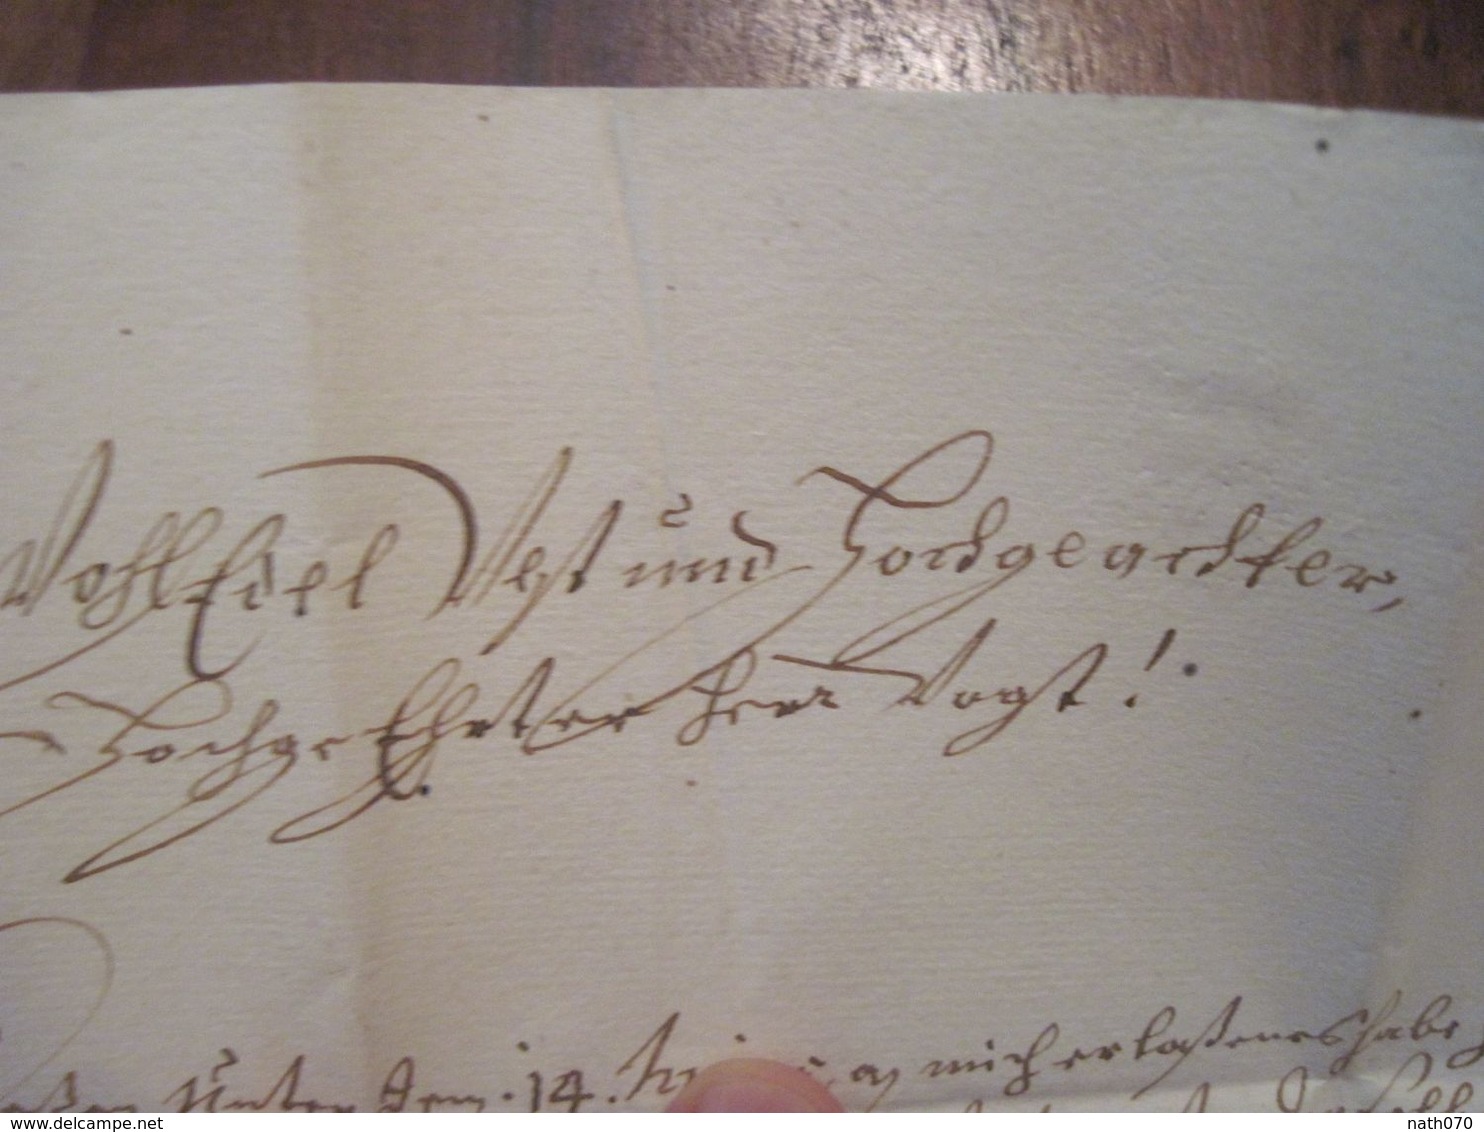 WohlEdel Vest und Hochgeachter,
HochgeEhrter Herr Vogt!
Unter dem 14. an mich erlaßenes habe
www.delcampe.net
nath070